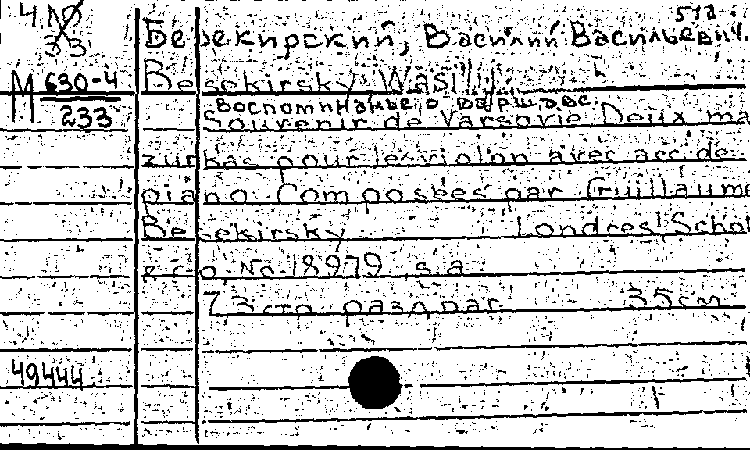 Ч № 33
518.
Безекирский, Василий Васильевич.
М 630-4
233
Besekirsky, Wasilij.
Воспоминанье о Варшаве.
Souvenir de Varsovie Deux ma
zurkas pour le violon avec acc. de
piano. Composées par Guillaume
Besekirsky Londres, Schot
No. 18979 s.a.
7, 3 стр. разд. паг. 35 см.
49444